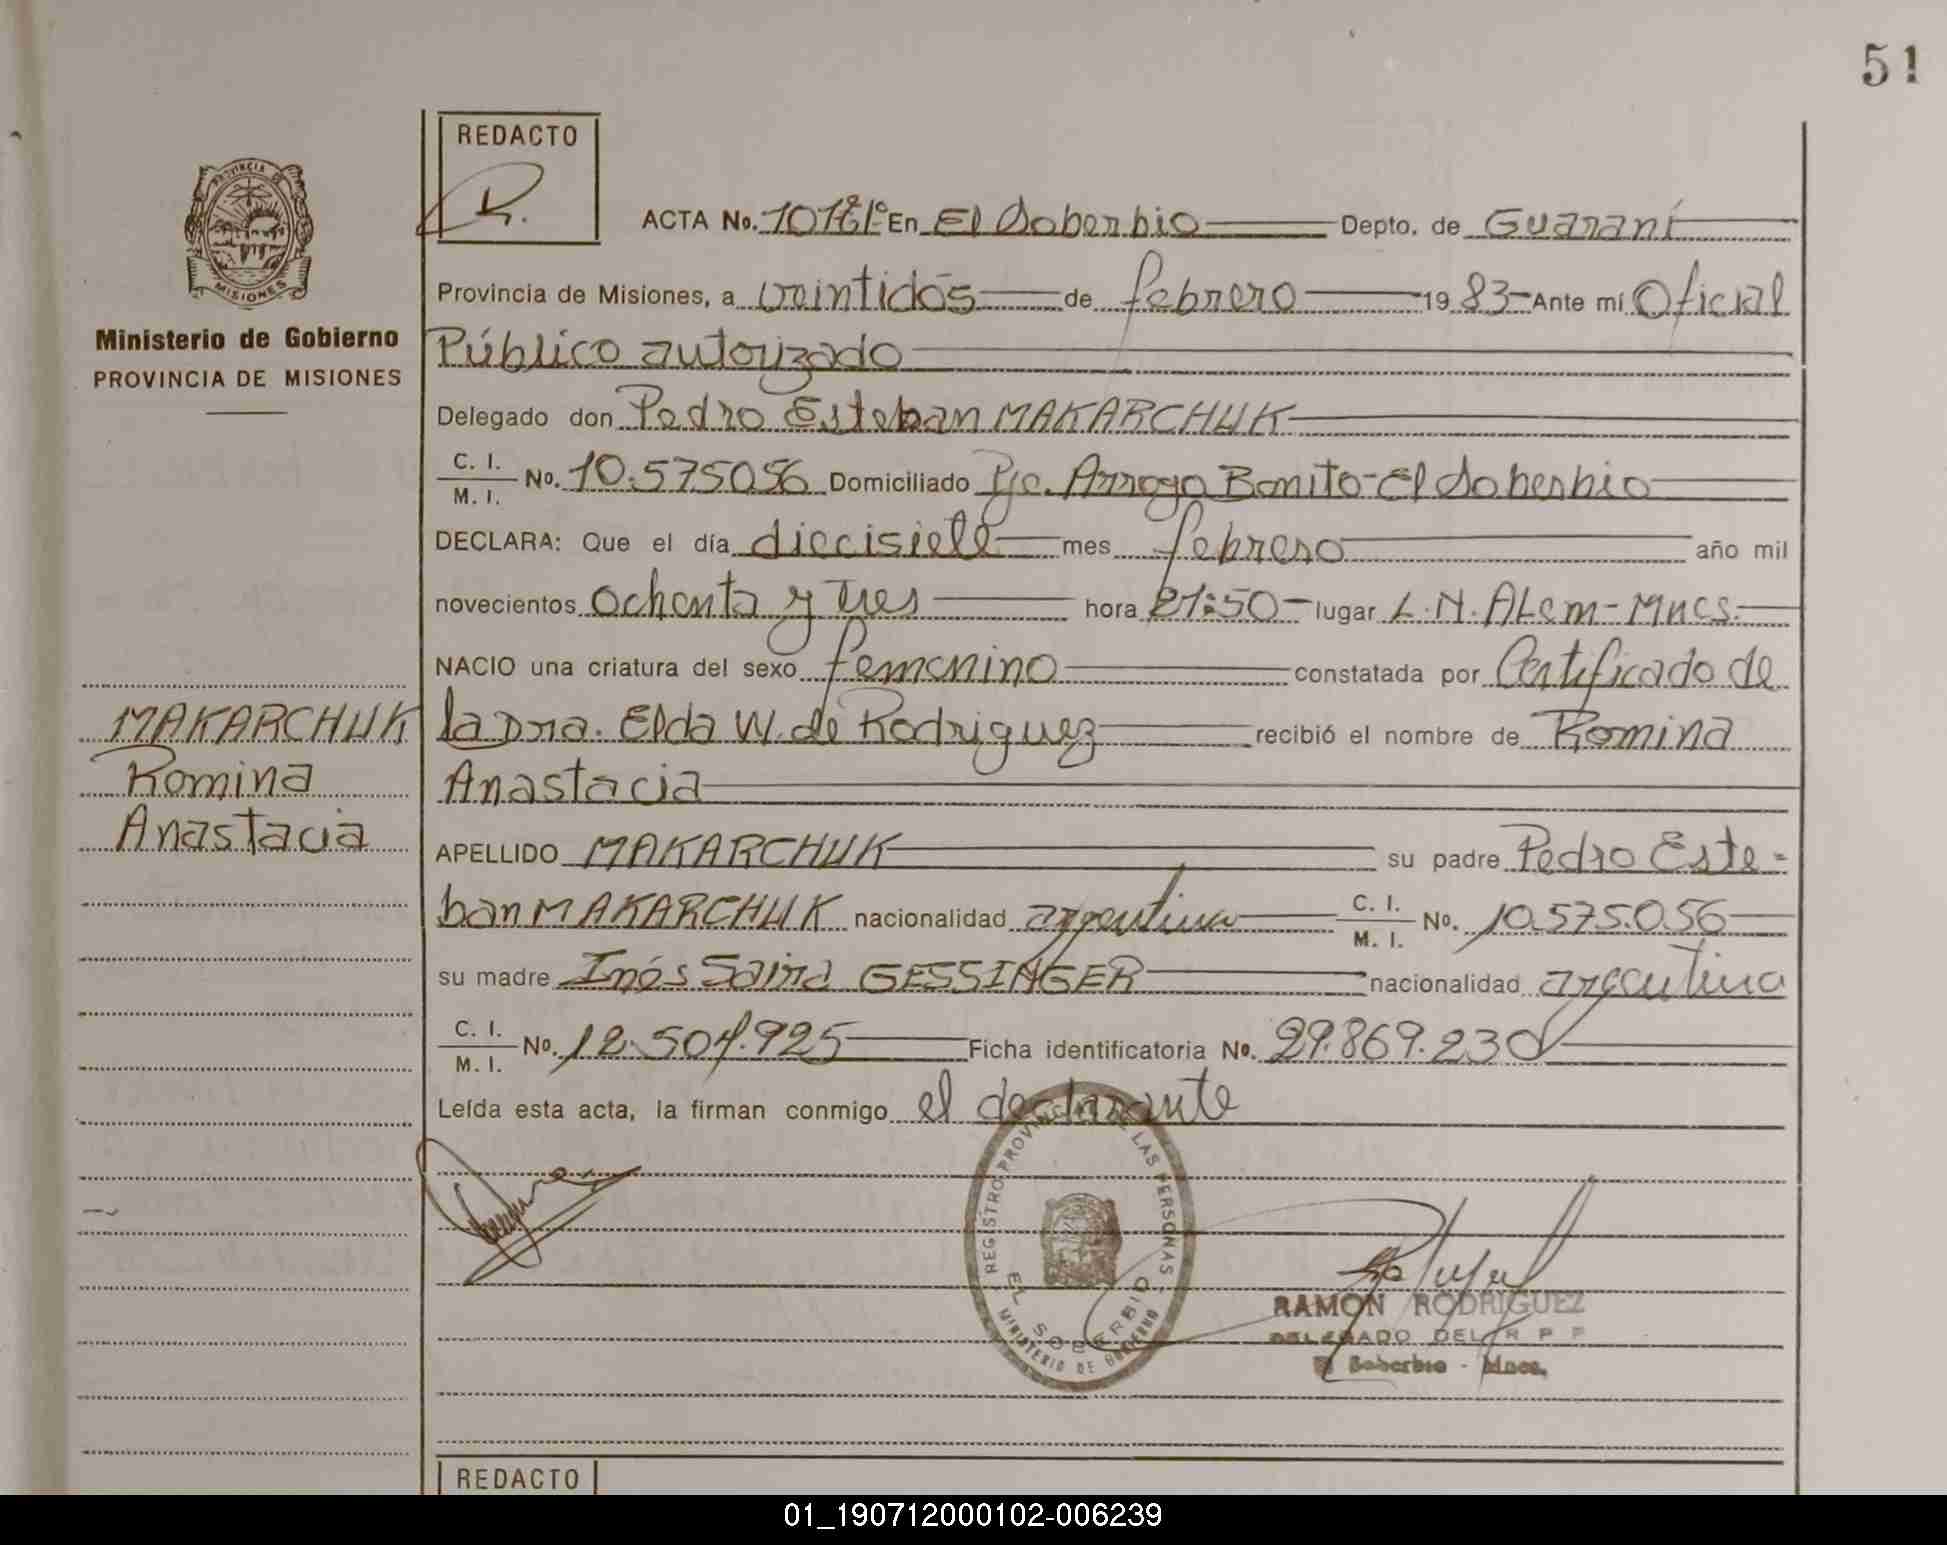 51
REDACTO
PROVINCIA DE
MISIONES
Ministerio de Gobierno
PROVINCIA DE MISIONES
ACTA No. En El Soberbio Depto. de Guaraní
Provincia de Misiones, a veintidós de febrero 1983 Ante mí Oficial
Público autorizado
Delegado don Pedro Esteban MAKARCHUK
C. I. M. I. No. 10.575056 Domiciliado Pje. Arroyo Bonito-El Soberbio
DECLARA: Que el día diecisiete mes febrero año mil
novecientos ochenta y tres hora 21:50 lugar L.N.ALem-Mnes.
NACIO una criatura del sexo femenino constatada por Certificado de
la Dra. Elda W. de Rodriguez recibió el nombre de Romina
Anastacia
MAKARCHUK
Romina
Anastacia
APELLIDO MAKARCHUK su padre Pedro Este=
ban MAKARCHUK nacionalidad argentina C. I. M. I. No. 10.575.056
su madre Inés GESSINGER nacionalidad argentina
C. I. M. I. No. 12.504.925 Ficha identificatoria No. 29.869.230
Leída esta acta, la firman conmigo el declarante
REGISTRO PROVINCIAL DE LAS PERSONAS
EL SOBERBIO
MINISTERIO DE GOBIERNO
RAMON RODRIGUEZ
DELEGADO DEL R P P
El Soberbio - Mnes.
REDACTO
01_190712000102-006239